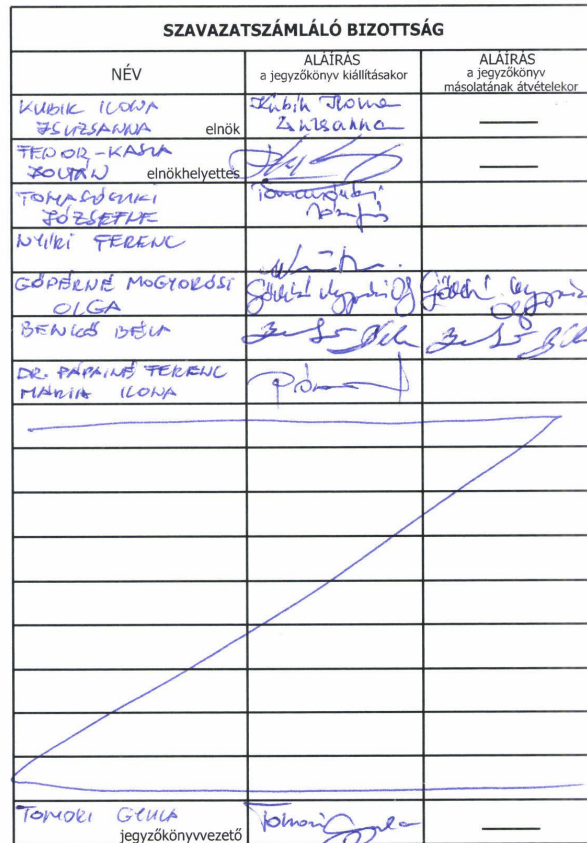 SZAVAZATSZÁMLÁLÓ BIZOTTSÁG
NÉV
ALÁÍRÁS
a jegyzőkönyv kiállításakor
ALÁÍRÁS
a jegyzőkönyv
másolatának átvételekor
KUBIK ILONA
ZSUZSANNA elnök
Kubik Ilona
Zsuzsanna
FEDOR-KASZA
ZOLTÁN elnökhelyettes
JÓZSEFNÉ
NYÍRI FERENC
GÖPÉRNÉ MOGYORÓSI
OLGA
BENKŐ BÉLA
Benkő Béla
Benkő Béla
DR. PÁPAINÉ FERENC
MÁRIA ILONA
TOMORI GYULA
jegyzőkönyvvezető
Tomori Gyula